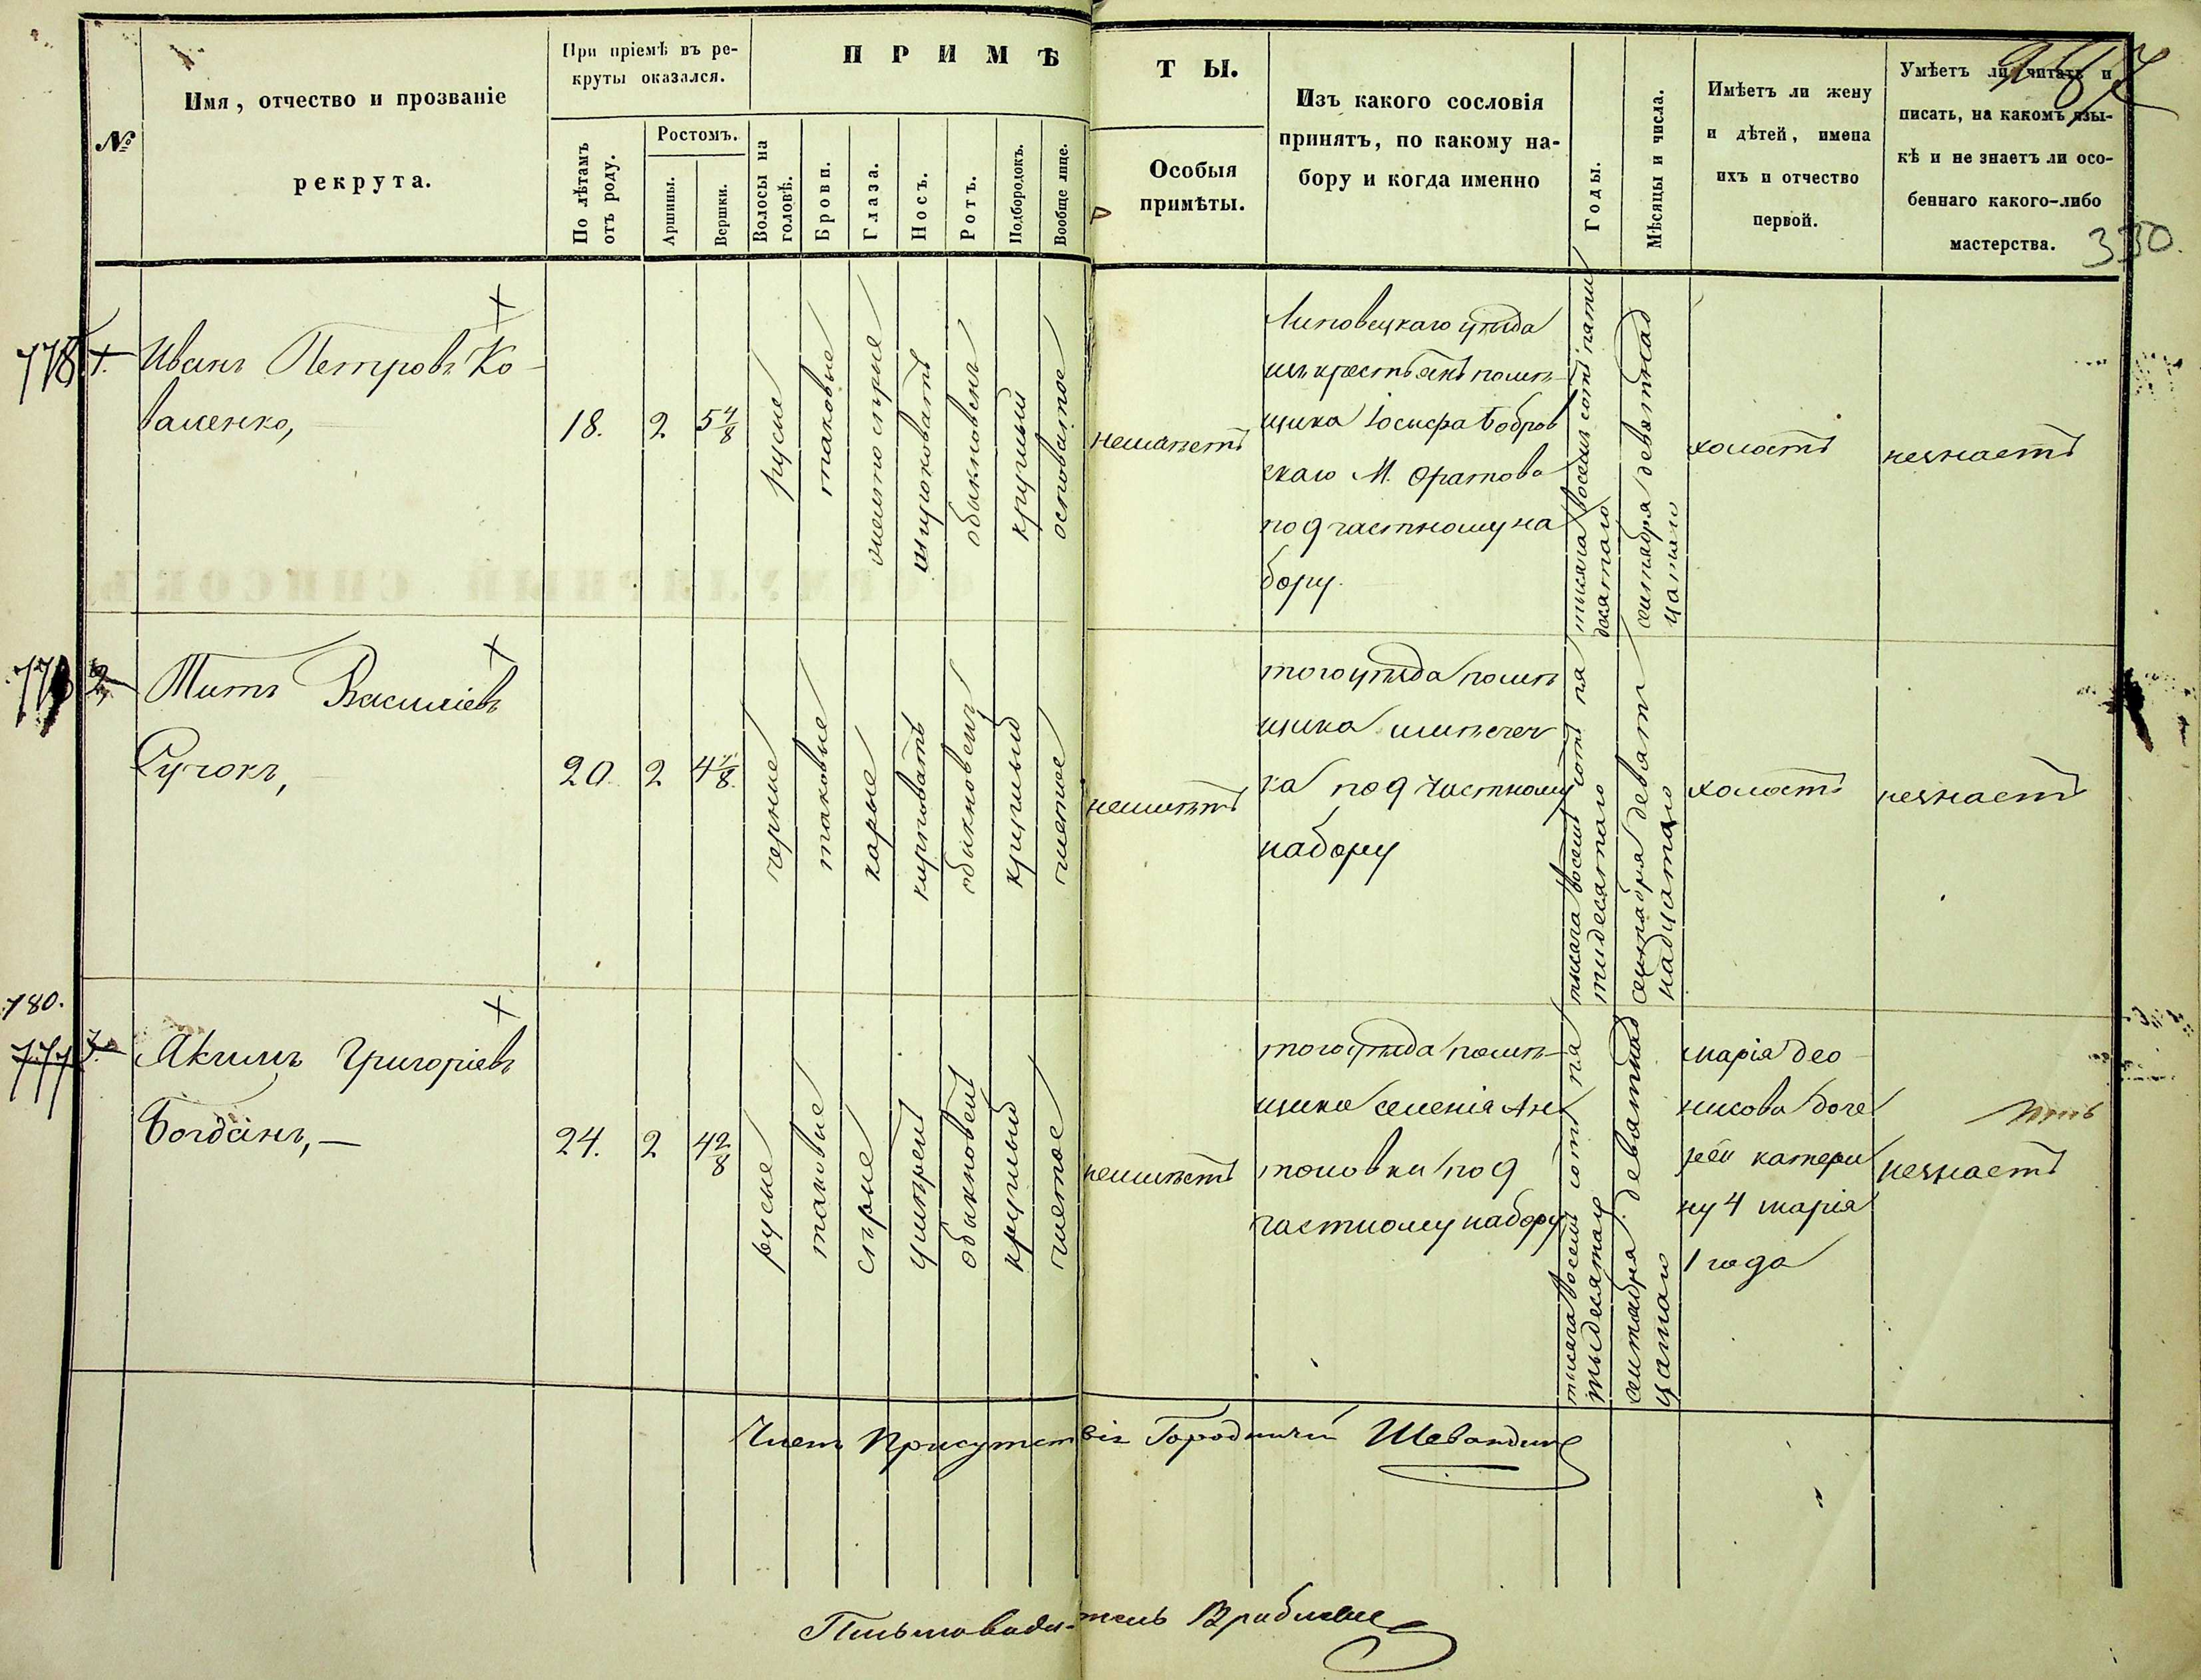 №
Имя, отчество и прозваніе
рекрута.
При пріемѣ въ ре-
круты оказался.
По лѣтамъ
отъ роду.
Ростомъ.
Аршины.
Вершки.
ПРИМѢ
ТЫ.
Волосы на
головѣ.
Брови.
Глаза.
Носъ.
Ротъ.
Подбородокъ.
Вообще лице.
Особыя
примѣты.
Изъ какого сословія
принятъ, по какому на-
бору и когда именно
Годы.
Мѣсяцы и числа.
Имѣетъ ли жену
и дѣтей, имена
ихъ и отчество
первой.
Умѣетъ ли читать и
писать, на какомъ язы-
кѣ и не знаетъ ли осо-
беннаго какого-либо
мастерства.
330.
778
1.
Иванъ Петровъ Ко-
валенко,
18.
2
5 4/8
русые
таковые
желтосѣрые
широковатъ
обыкновенъ
круглый
осповатое
неимѣетъ
Липовецкаго уѣзда
изъ крестьянъ помѣ-
щика Іосифа Бобров
скаго М. Оратова
по 9 частному на
бору.
тысяча восемь сотъ пяти
десятаго
сентября девятнад
цатаго
холостъ
незнаетъ
779
2
Титъ Василіевъ
Сучокъ,
20.
2
черные
таковые
карые
курповатъ
обыкновенъ
круглый
чистое
неимѣетъ
того уѣзда помѣ
щика
ка по 9 частному
набору
тысяча восемь сотъ пя
тидесятаго
сентября девят
надцатаго
холостъ
незнаетъ
780.
777
3.
Якимъ Григоріевъ
Богданъ,
24.
2
4 2/8
русые
таковые
сѣрые
умѣренъ
обыкновенъ
круглый
чистое
неимѣетъ
того уѣзда помѣ-
щика селенія Ан
тоновки по 9
частному набору
тысяча восемь сотъ пя
тыдесятаго
сентября девятнад
цатаго
марія део
нисова доче
рей катери
ну 4 марія
1 года
незнаетъ
Членъ Присутствія Городничій
Письмоводитель